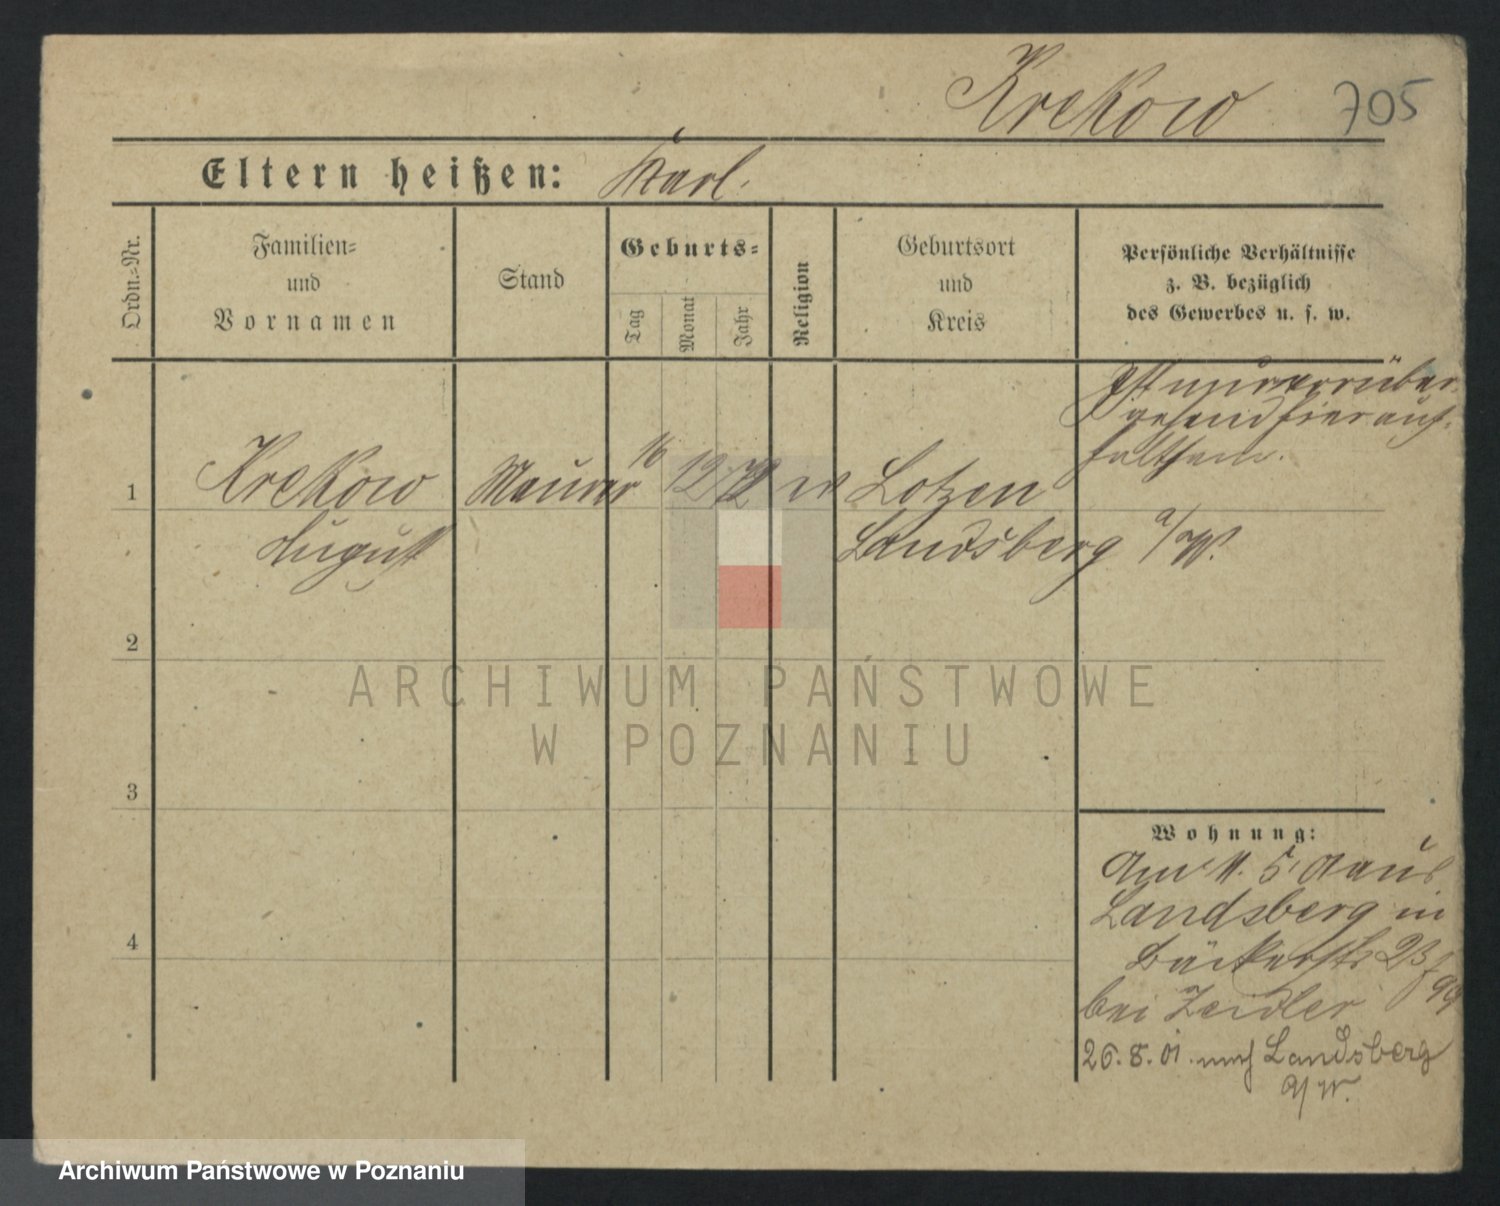 Krekow 705
Eltern heißen: Karl.
Ordn.-Nr.
Familien-
und
Vornamen
Stand
Geburts-
Tag
Monat
Jahr
Religion
Geburtsort
und
Kreis
Persönliche Verhältnisse
z. B. bezüglich
des Gewerbes u. s. w.
Ist nur vorüber-
gehend hier auf-
haltsam.
1 Krekow Maurer 16 12 72 Lotzen
August Landsberg a/W.
2
3
4
Wohnung:
Am 11. 5. aus
Landsberg in
Bäckerstr 23
bei Zeidler
26. 8. 01. nach Landsberg
a/W.
ARCHIWUM PAŃSTWOWE
W POZNANIU
Archiwum Państwowe w Poznaniu